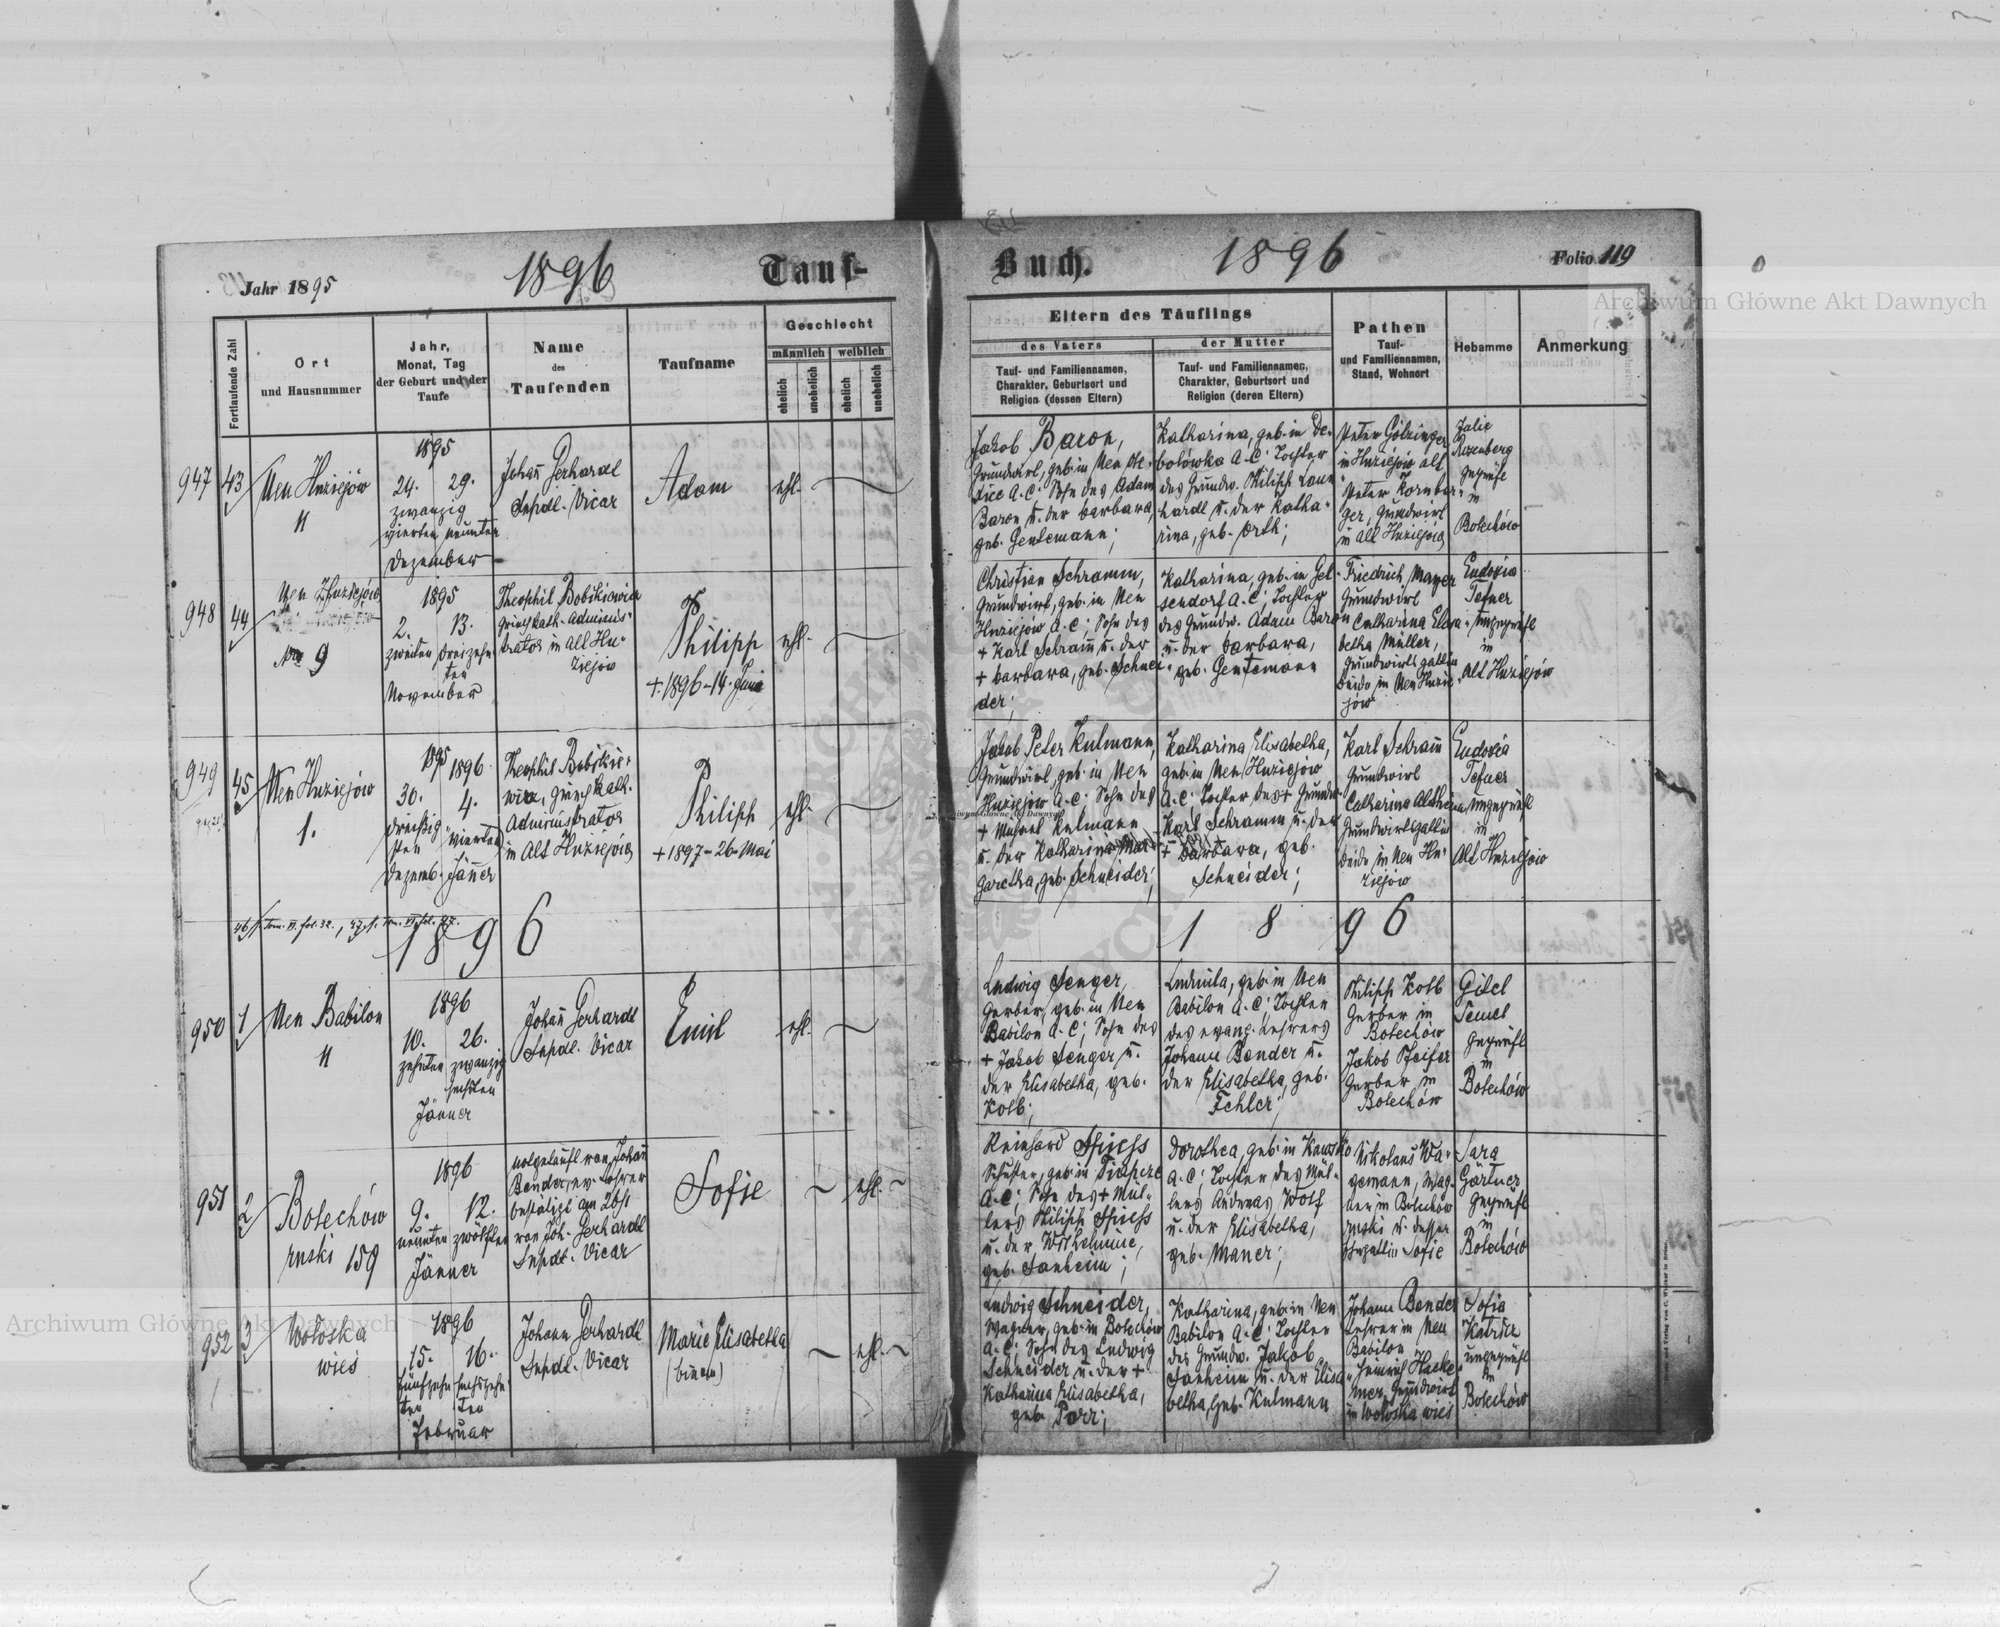 Jahr 1895
1896
Tauf-
Buch.
1896
Folio 119
Archiwum Główne Akt Dawnych
Fortlaufende Zahl
Ort
und Hausnummer
Jahr,
Monat, Tag
der Geburt und der
Taufe
Name
des
Taufenden
Taufname
Geschlecht
männlich
weiblich
ehelich
unehelich
ehelich
unehelich
Eltern des Täuflings
des Vaters
Tauf- und Familiennamen,
Charakter, Geburtsort und
Religion (dessen Eltern)
der Mutter
Tauf- und Familiennamen,
Charakter, Geburtsort und
Religion (deren Eltern)
Pathen
Tauf-
und Familiennamen,
Stand, Wohnort
Hebamme
Anmerkung
947
43
Neu Huziejów
11
1895
24. 29.
zwanzig
vierten neunten
Dezember
Johañ Gerhardt
Supdt. Vicar
Adam
ehl.
Jakob Baron,
Grundwirt, geb. in Neu
A.C; Sohn des Adam
Baron u. der Barbara,
geb. Gentemann;
Katharina, geb. in De-
bolówka A.C; Tochter
des Grundw. Philipp Leon-
hardt u. der Katha-
rina, geb. Orth;
Peter Gölzinger
in Huziejów alt
Peter Kornber-
ger, Grundwirt
in Alt Huziejów
Julie
Rosenberg
geprüft
in
Bolechów
948
44
Neu Huziejów
9
1895
2. 13.
zweiten dreizehn-
ten
November
Theophil Bobikiewicz
griech. kath. Adminis-
trator in Alt Hu-
ziejów
Philipp
+ 1896-14. Juni
ehl.
Christian Schramm,
Grundwirt, geb. in Neu
Huziejów A.C; Sohn des
+ Karl Schram̄ u. der
+ Barbara, geb. Schnei-
der;
Katharina, geb. in Gel-
sendorf A.C; Tochter
des Grundw. Adam Baron
u. der Barbara,
geb. Gentemann
Friedrich Mayer
Grundwirt
Catharina Elisa-
betha Müller,
Grundwirtsgattin
beide in Neu Huzie-
jów
Eudoxia
Tefner
ungeprüft
in
Alt Huziejów
949
45
Neu Huziejów
1.
1895 1896
30. 4.
dreißig- vierten
sten
Dezemb. Jäner
Theophil Bobikie-
wicz, griech. kath.
Administrator
in Alt Huziejów
Philipp
+ 1897-26. Mai
ehl.
Jakob Peter Kulmann,
Grundwirt, geb. in Neu
Huziejów A.C; Sohn des
+ Kulmann
u. der Katharina Mar-
garetha, geb. Schneider;
Katharina Elisabetha,
geb. in Neu Huziejów
A.C; Tochter des + Grundw.
Karl Schramm u. der
+ Barbara, geb.
Schneider;
Karl Schram̄
Grundwirt
Catharina
Grundwirtsgattin
beide in Neu Hu-
ziejów
Eudoxia
Tefner
ungeprüft
in
Alt Huziejów
1896
1 8 9 6
950
1
Neu Babilon
11
1896
10. 26.
zehnten zwanzig
sechsten
Jänner
Johañ Gerhardt
Supdt. Vicar
Emil
ehl.
Ludwig Senger,
Gerber, geb. in Neu
Babilon A.C; Sohn des
+ Jakob Senger u.
der Elisabetha, geb.
Kolb;
Ludmila, geb. in Neu
Babilon A.C; Tochter
des evang. Lehrers
Johann Bender u.
der Elisabetha, geb.
Fehler;
Philipp Kolb
Gerber in
Bolechów
Jakob Pfeifer
Gerber in
Bolechów
Gitel
Semel
geprüft
in
Bolechów
951
2
Bolechów
ruski 159
1896
9. 12.
neunten zwölften
Jänner
notgetauft von Johañ
Bender, ev. Lehrer
bestätigt am 26/1
von Joh. Gerhardt
Supdt. Vicar
Sofie
ehl.
Reinhard Spiess
Schuster, geb. in
A.C; Sohn des + Mül-
lers Philipp Spiess
u. der Wilhelmine,
geb. Sanheim;
Dorothea, geb. in
A.C; Tochter des Mül-
lers Andreas Wolf
u. der Elisabetha,
geb. Maner;
Nikolaus Wa-
gemann, Wag-
ner in Bolechów
ruski u. dessen
Ehegattin Sofie
Sara
Gärtner
geprüft
in
Bolechów
952
3
Wołoska
wieś
1896
15. 16.
fünfzehn- sechszehn-
ten ten
Februar
Johann Gerhardt
Supdt. Vicar
Marie Elisabetha
ehl.
Ludwig Schneider,
Wagner, geb. in Bolechów
A.C; Sohn des Ludwig
Schneider u. der +
Katharina Elisabetha,
geb. Porr;
Katharina, geb. in Neu
Babilon A.C; Tochter
des Grundw. Jakob
Sanheim u. der Elisa-
betha, geb. Kulmann
Johann Bender
Lehrer in Neu
Babilon
Heinrich
Grundwirt
in Wołoska wieś
Sofia
ungeprüft
in
Bolechów
Archiwum Główne Akt Dawnych